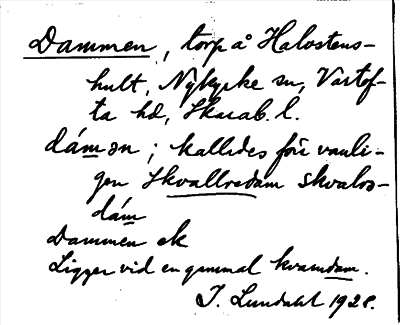 Dammen, torp å Halvstens-
hult, Nykyrke sn, Vartof-
ta hd, Skarab. l.
dámən; kallades förr vanli-
gen Skvallredam skvalrə-
dám
Dammen ek
Ligger vid en gammal kvarndam.
J. Lundahl 1928.